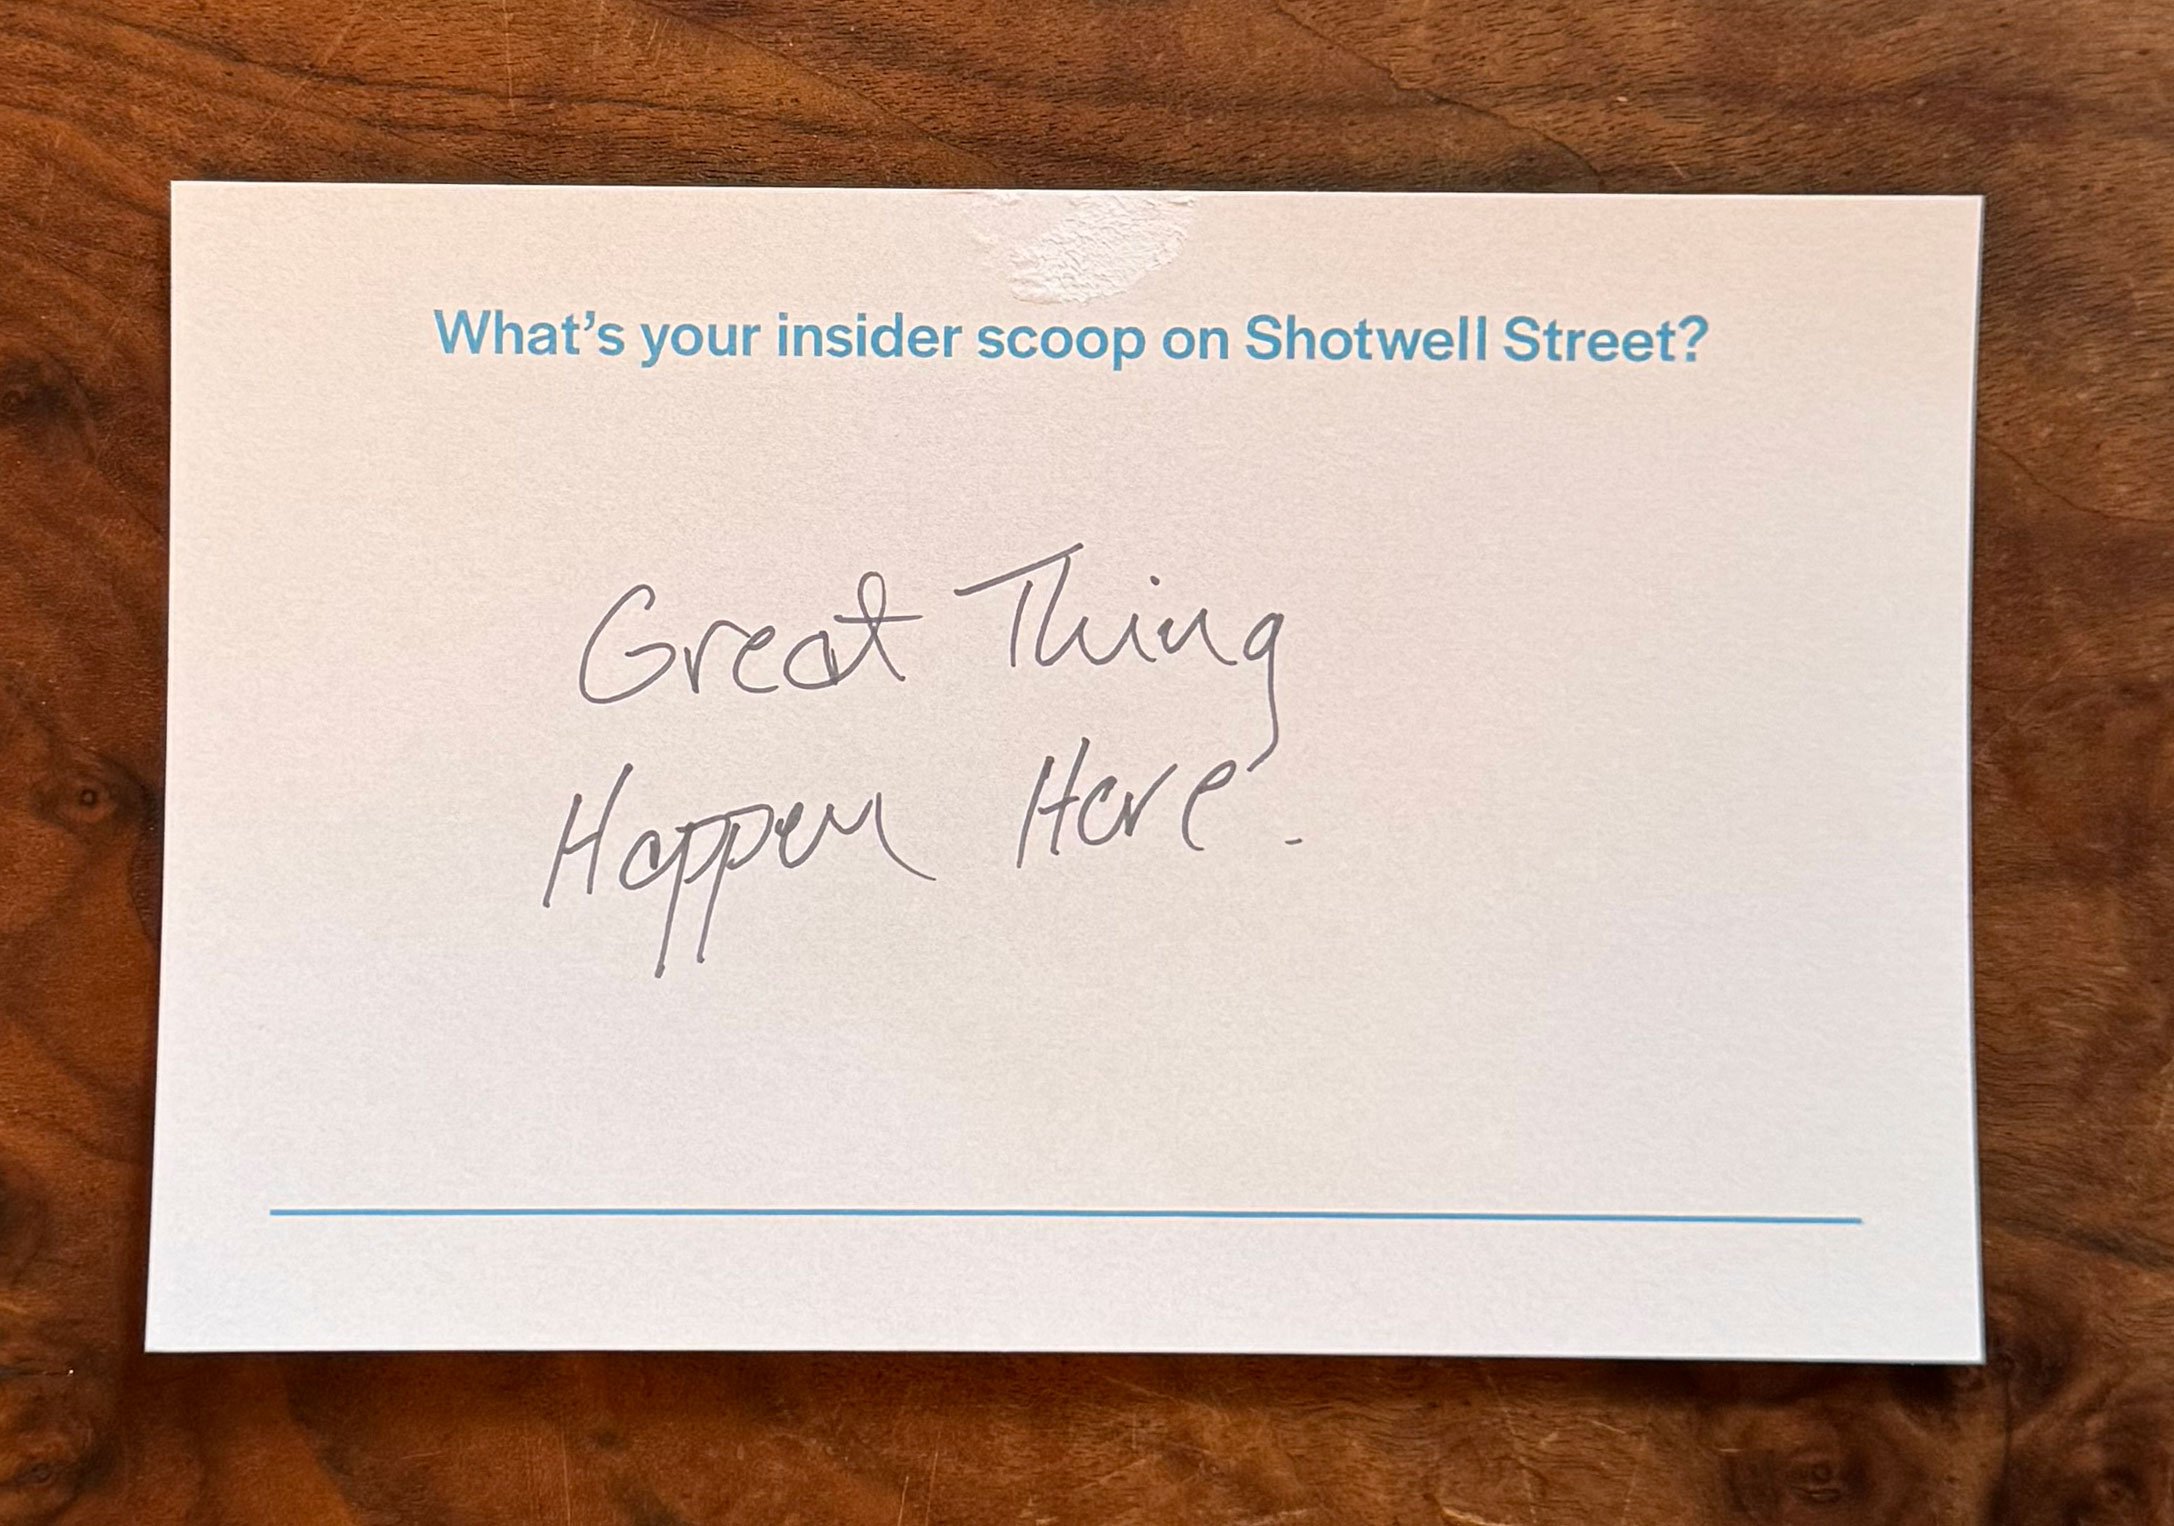 What's your insider scoop on Shotwell Street?
Great Thing
Happen Here.